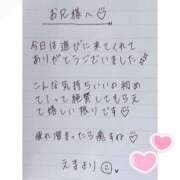 お兄様へ♡
今日は遊びに来てくれて
ありがとうございました
こんな気持ちいいの初め
てって絶賛してもらえ
て嬉しい限りです♡
疲れ溜まったら癒すね♡
えまより